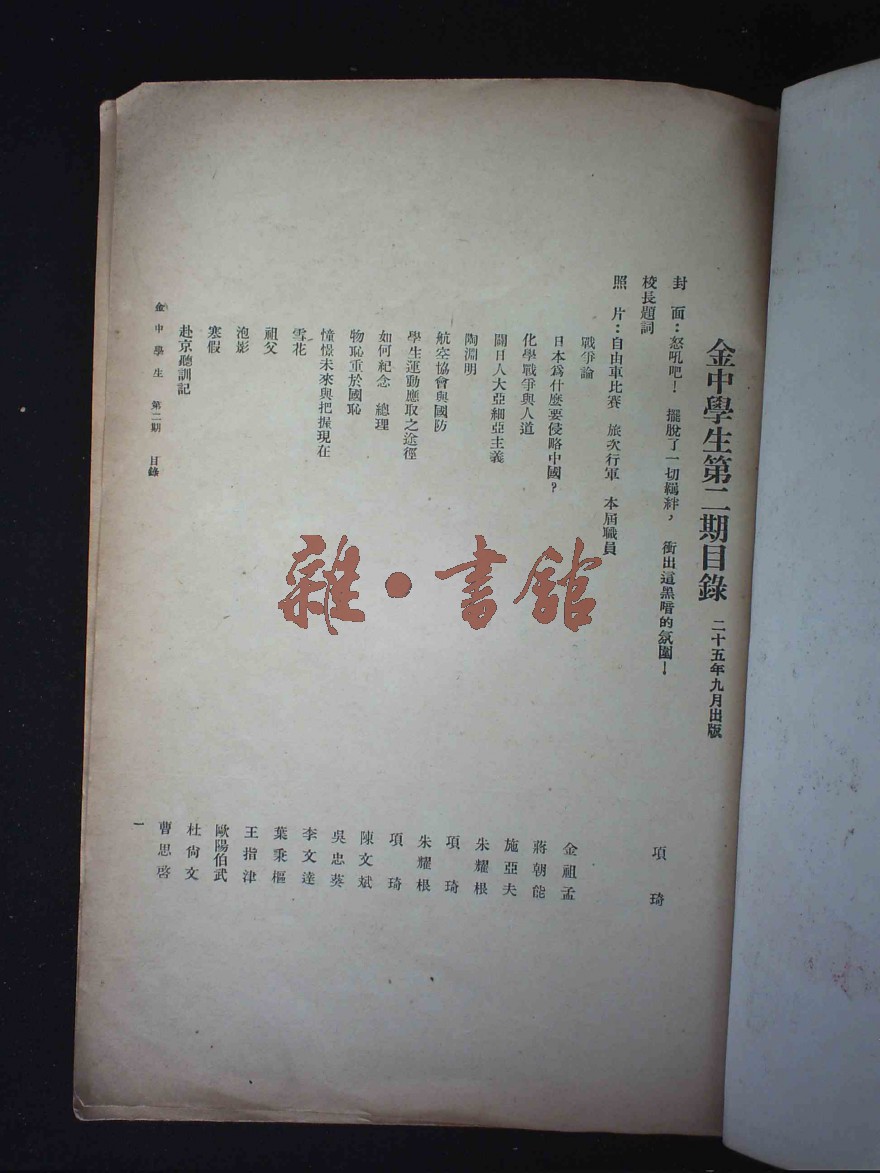 金中學生第二期目錄 二十五年九月出版
封 面：怒吼吧！ 擺脫了一切羈絆， 衝出這黑暗的氛圍！ 項琦
校長題詞
照 片：自由車比賽 旅次行軍 本屆職員
戰爭論 金祖孟
日本爲什麼要侵略中國？ 蔣朝能
化學戰爭與人道 施亞夫
闢日人大亞細亞主義 朱耀根
陶淵明 項琦
航空協會與國防 朱耀根
學生運動應取之途徑 項琦
如何紀念 總理 陳文斌
物恥重於國恥 吳忠葵
憧憬未來與把握現在 李文達
雪花 葉秉樞
祖父 王指津
泡影 歐陽伯武
寒假 杜尙文
赴京聽訓記 曹思啓
金中學生 第二期 目錄 一
雜·書館